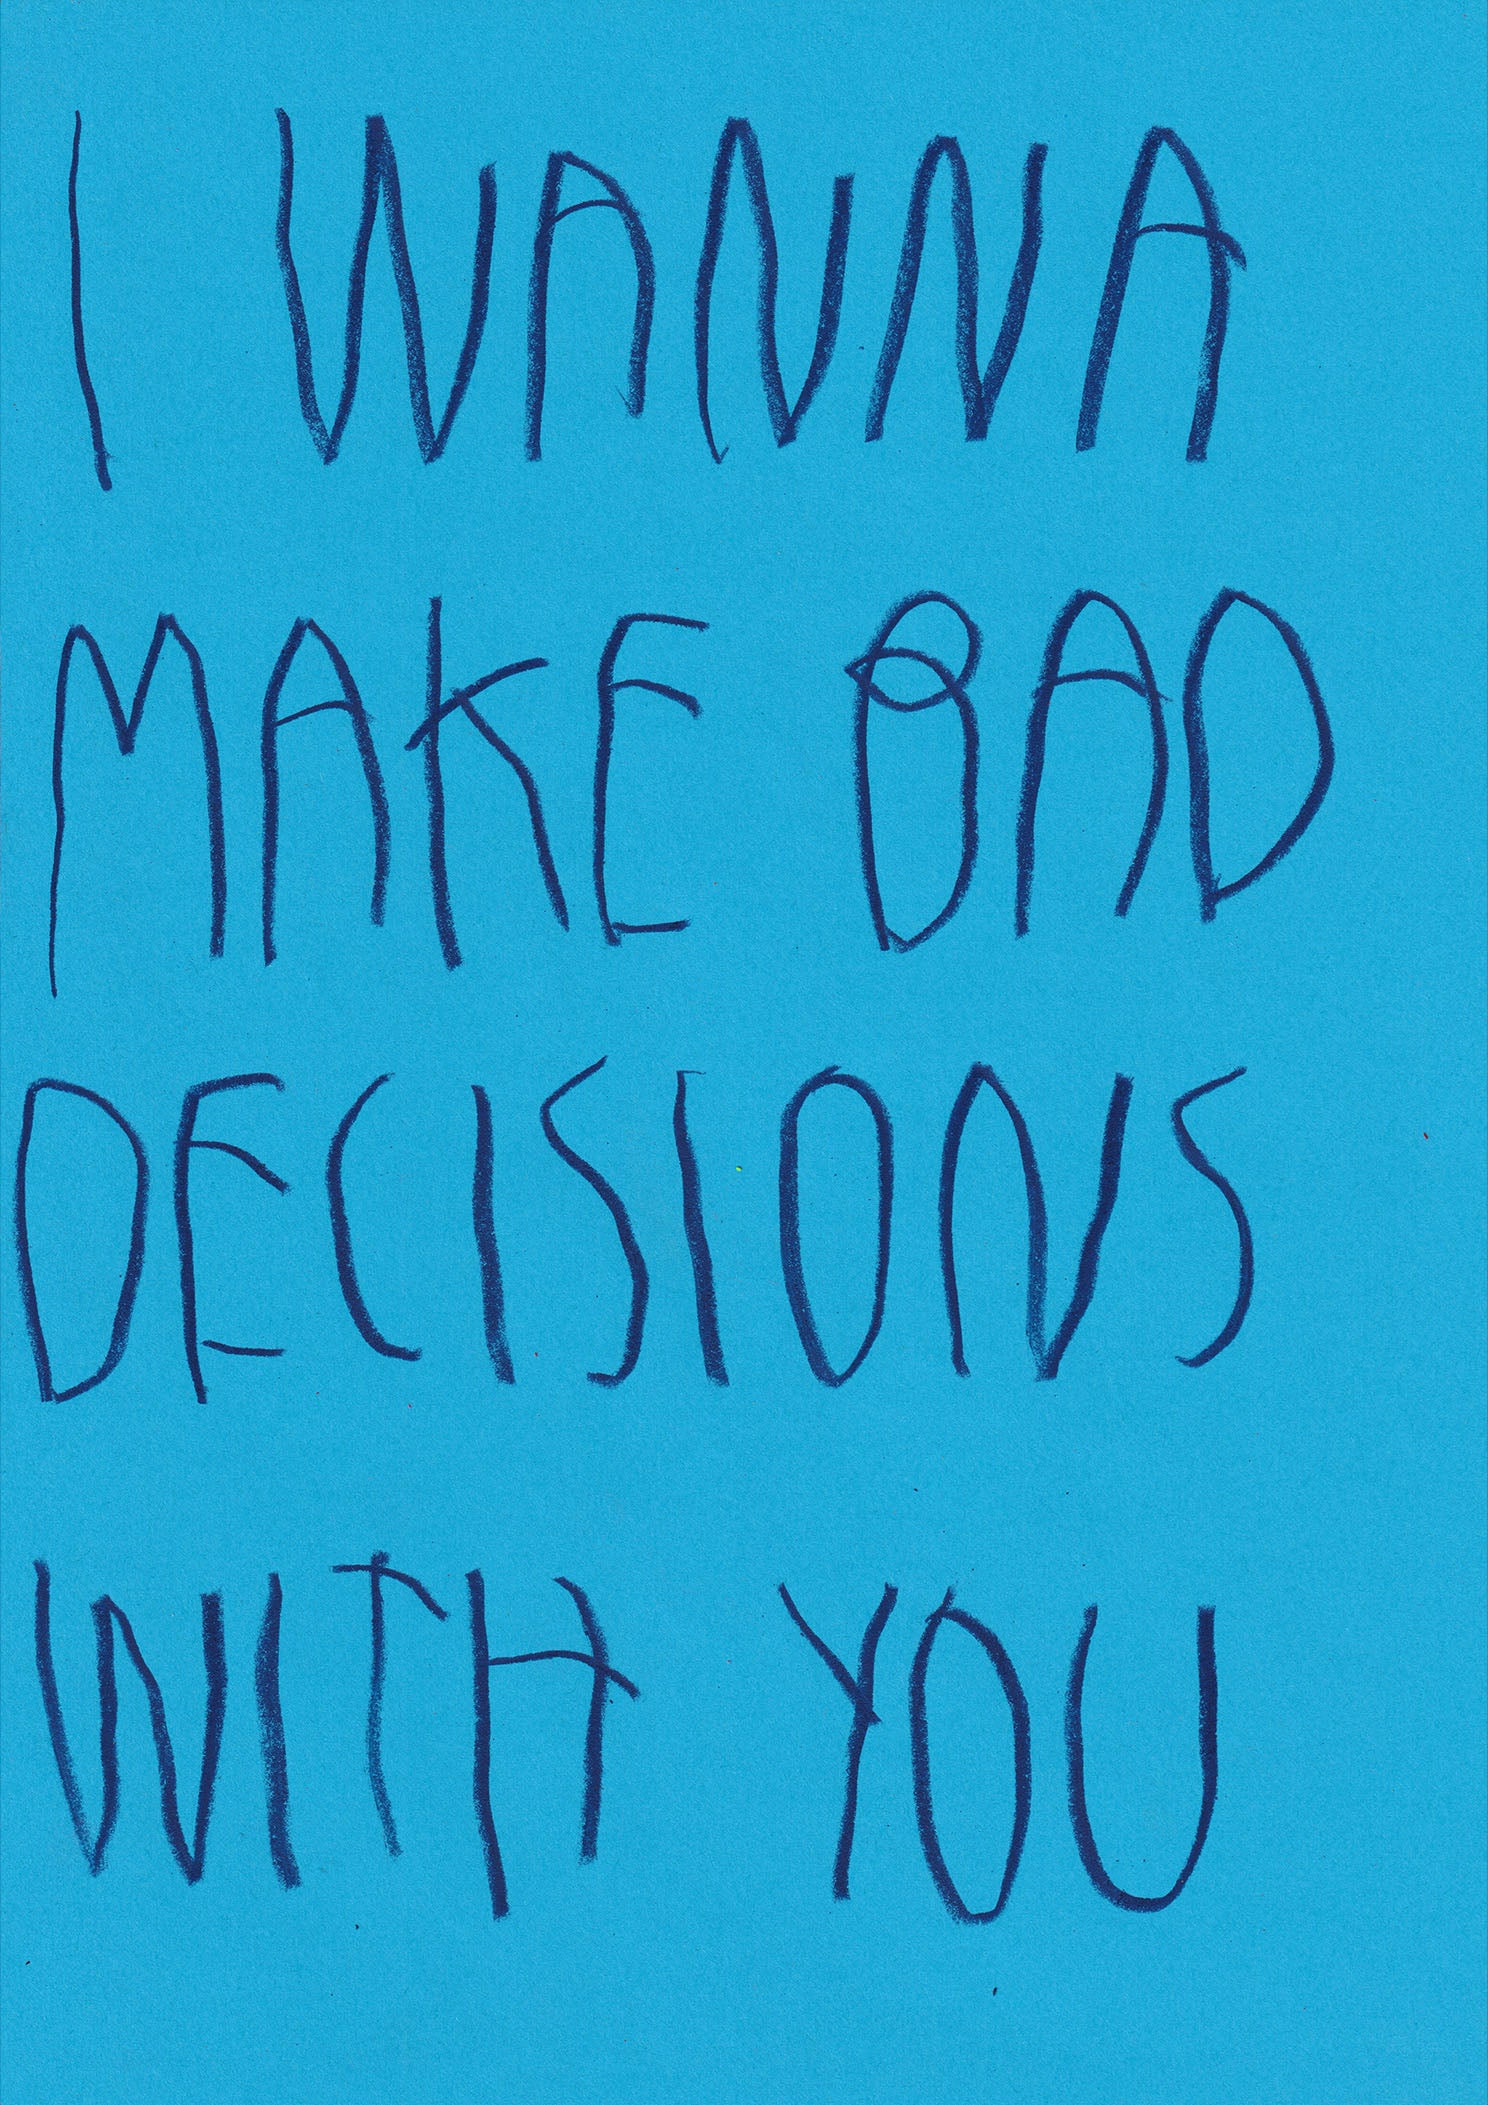 I WANNA
MAKE BAD
DECISIONS
WITH YOU